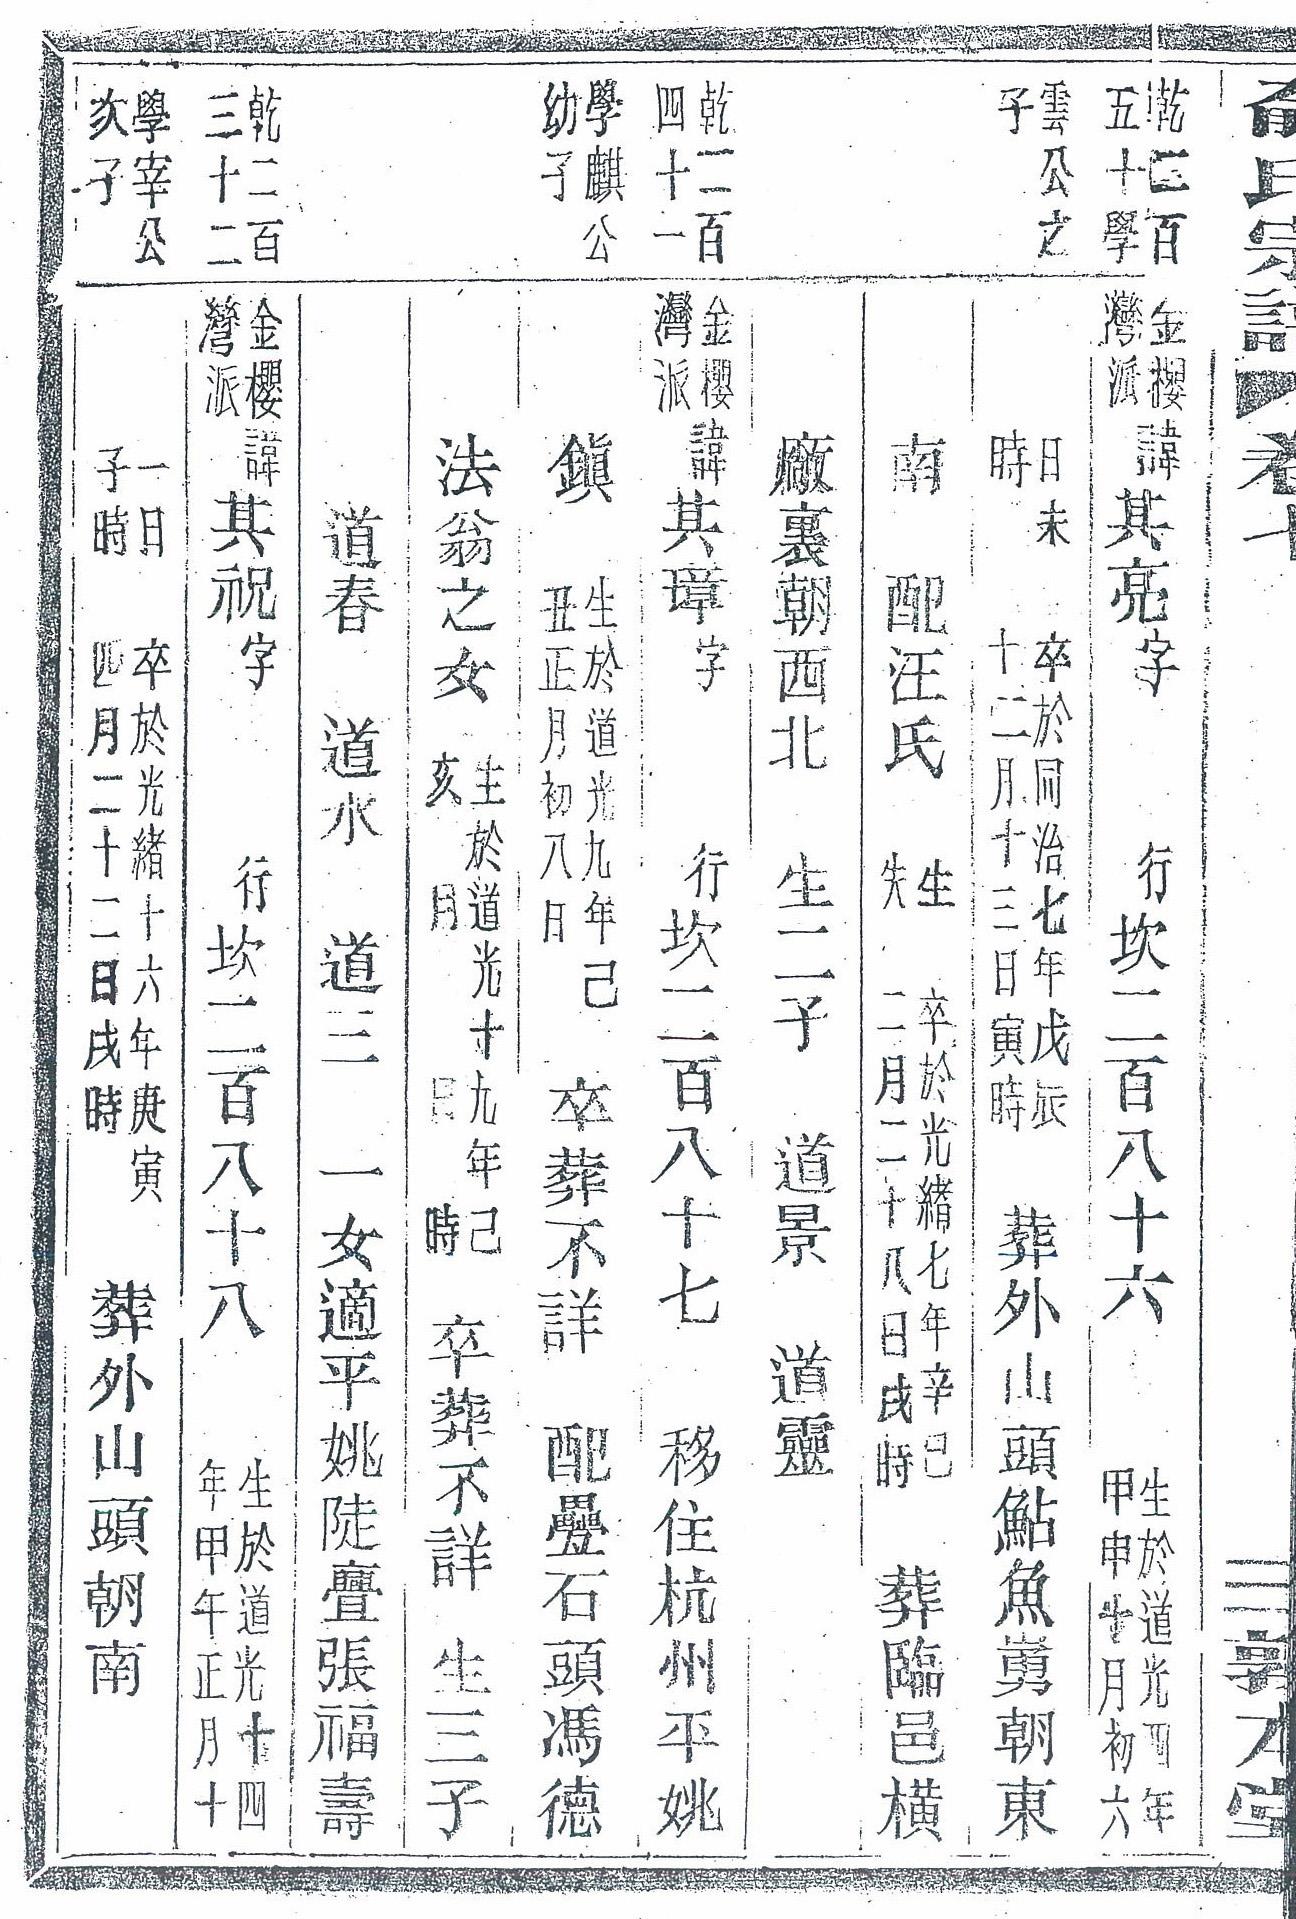 氏宗譜 卷十
三 敦本堂
乾二百五十學雲公之子
金櫻灣派 諱其亮字 行坎二百八十六 生於道光四年甲申七月初六
日未時 卒於同治七年戊辰十二月十三日寅時 葬外山頭鮎魚嵏朝東
南 配汪氏 生失 卒於光緒七年辛巳二月二十八日戌時 葬臨邑橫
廠裏朝西北 生二子 道景 道靈
乾二百四十一學麒公幼子
金櫻灣派 諱其璋字 行坎二百八十七 移住杭州平姚
鎮 生於道光九年己丑正月初八日 卒葬不詳 配疊石頭馮德
法翁之女 生於道光十九年己亥 月 日 時 卒葬不詳 生三子
道春 道水 道三 一女適平姚陡亹張福壽
乾二百三十二學宰公次子
金櫻灣派 諱其祝字 行坎二百八十八 生於道光十四年甲午正月十
一日子時 卒於光緒十六年庚寅四月二十二日戌時 葬外山頭朝南